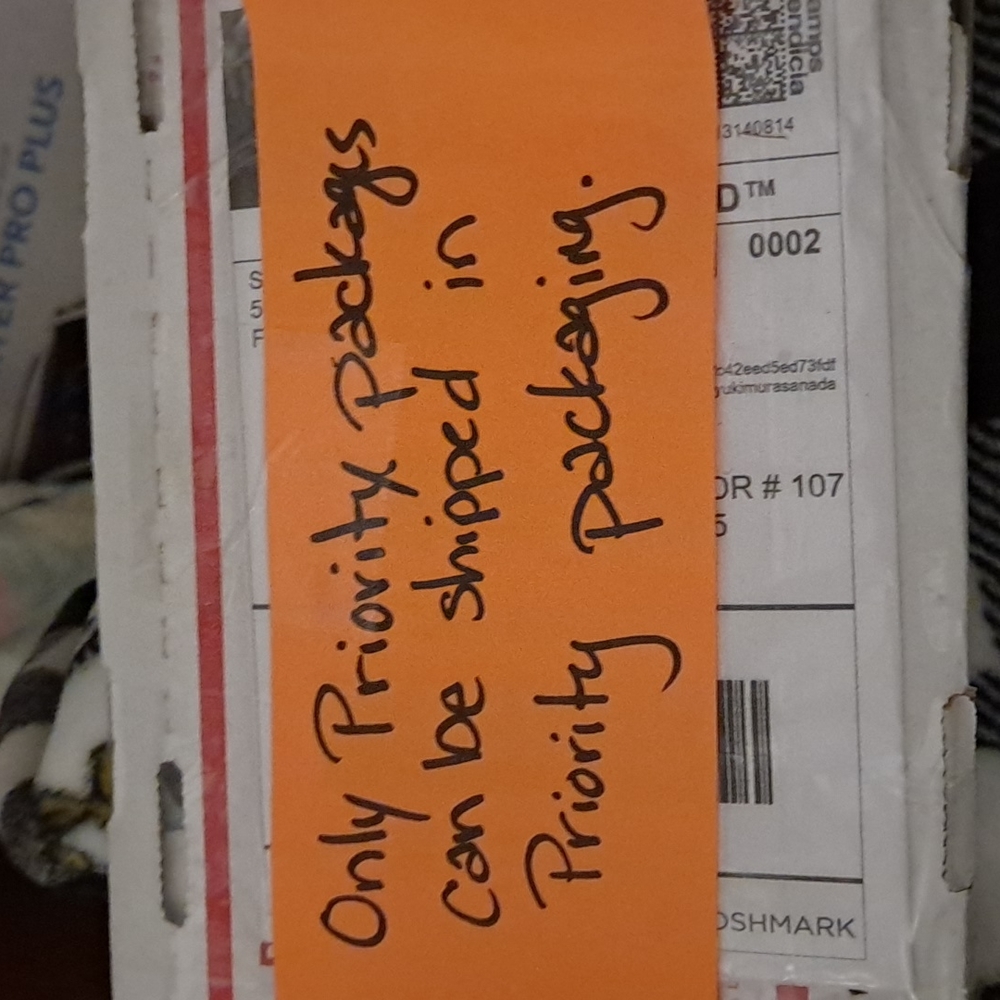 Only Priority Packages
can be shipped in
Priority packaging.
endicia
13140814
D™
0002
S
5
F
c42eed5ed73fdf
yukimurasanada
DR # 107
5
OSHMARK
PRO PLUS